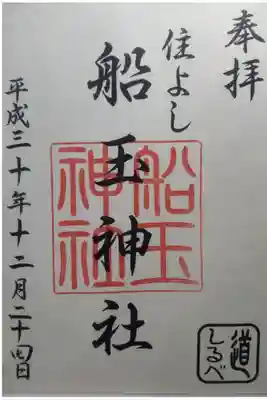 奉拝
住よし
船玉神社
船玉神社
平成三十年十二月二十四日
道しるべ